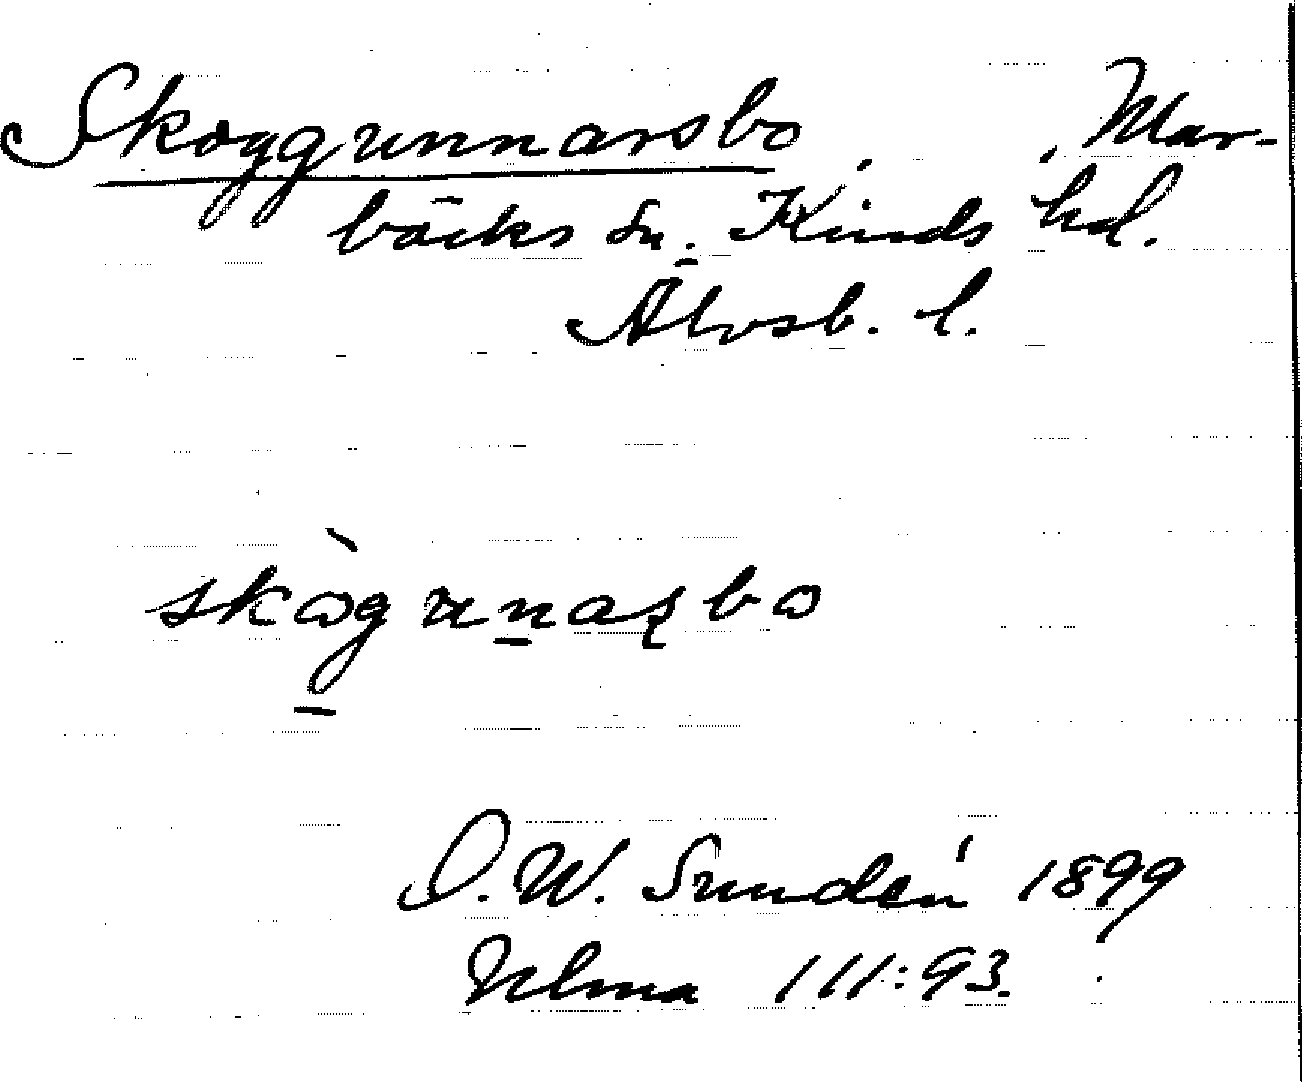 Skoggunnarsbo, , Mar-
bäcks sn. Kinds hd.
Älvsb. l.
skògunaʂbo
D. W. Sundén 1899
Ulma 111:93.